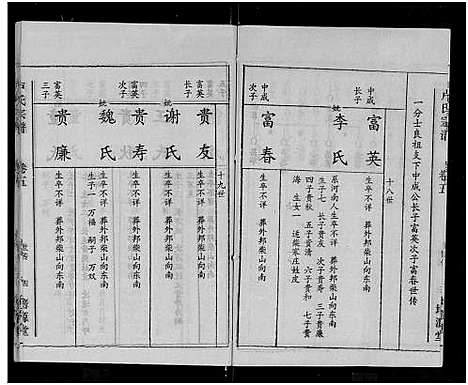 卢氏宗谱
卷五
一分士良祖支下中成公长子富英次子富春世传
十八世
中成
长子
富英
妣
李氏
生卒不详 葬外邦柴山向东南
系河南人生卒不详 葬外邦柴山向东南
生子七 长子贵友 次子贵寿 三子贵廉
四子贵秋 五子贵清 六子贵和 七子贵
海 生女一 适柴家庄姓皮
中成
次子
富春
生卒不详 葬外邦柴山向南
十九世
富英
贵友
妣
谢氏
生卒不详 葬外邦柴山向东南
富英
次子
贵寿
妣
魏氏
生卒不详 葬外邦柴山向东南
生子一 万福 嗣子 万双
富英
三子
贵廉
生卒不详 葬外邦柴山向东南
氏宗谱
卷五
四
源堂